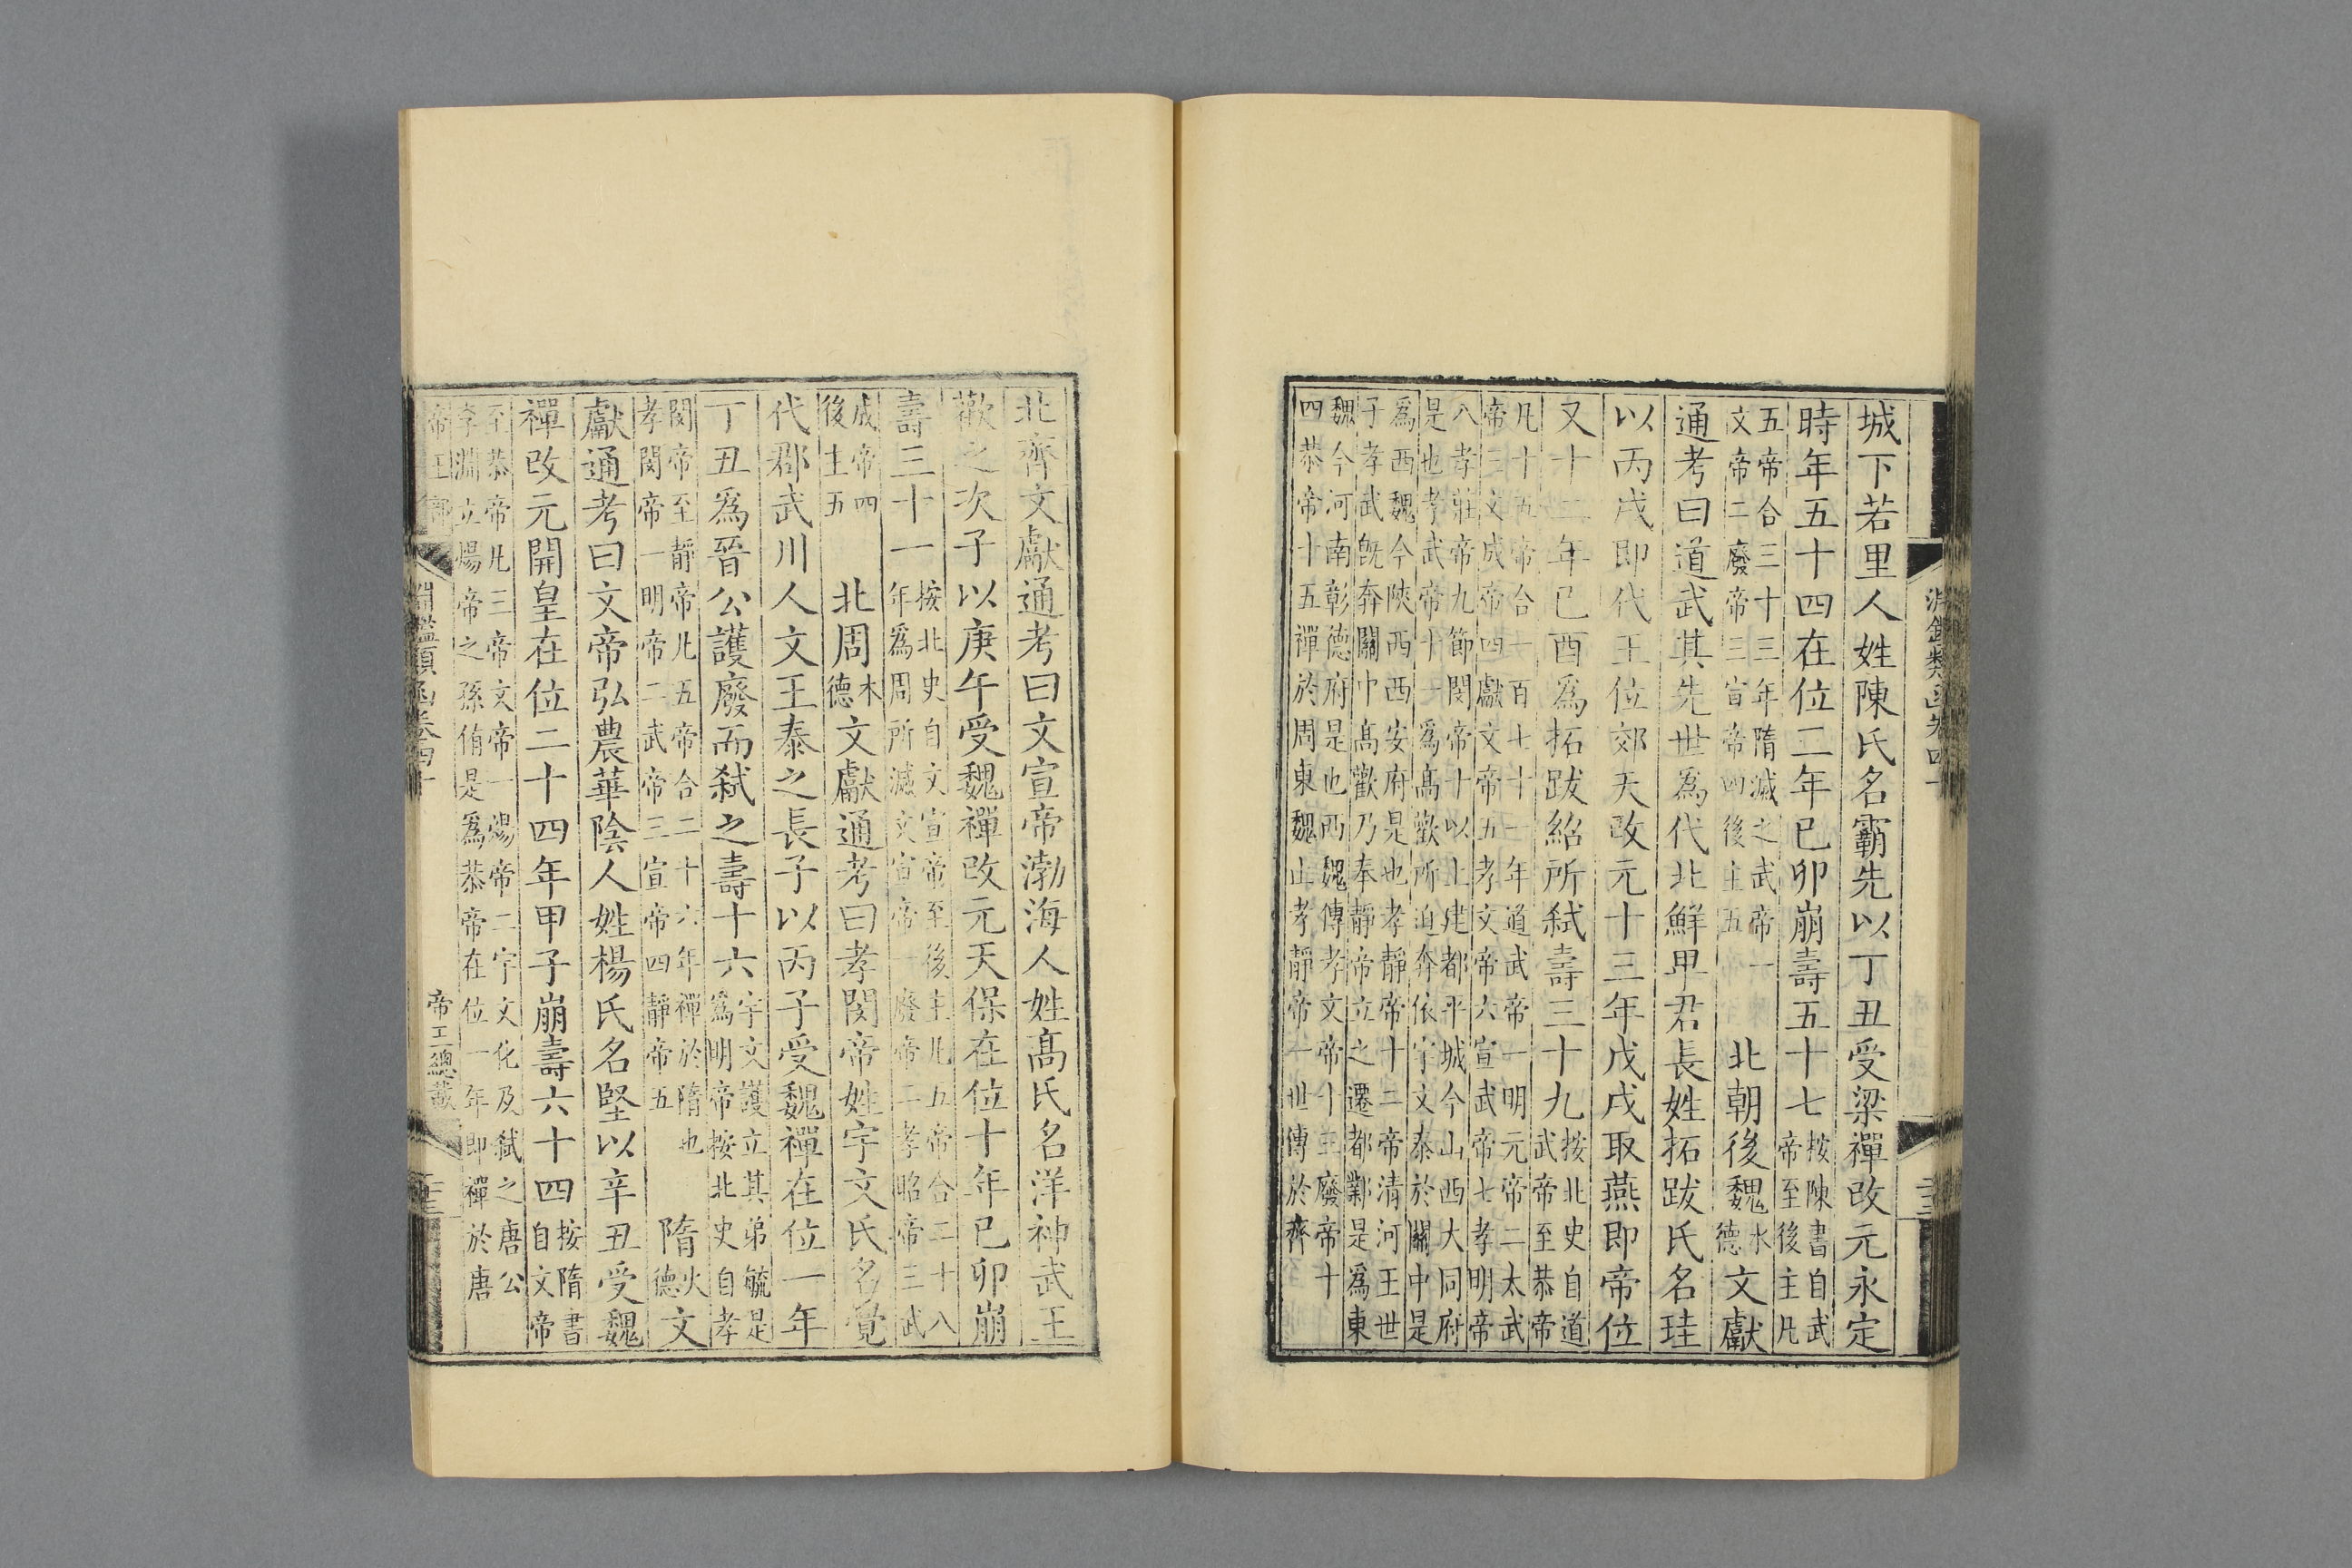 城下若里人姓陳氏名霸先以丁丑受梁禪改元永定
時年五十四在位二年已卯崩壽五十七按陳書自武帝至後主凡
五帝合三十三年隋滅之武帝一文帝二廢帝三宣帝四後主五 北朝後魏水德文獻
通考曰道武其先世爲代北鮮卑君長姓拓跋氏名珪
以丙戌即代王位郊天改元十三年戊戌取燕即帝位
又十二年已酉爲拓跋紹所弑壽三十九按北史自道武帝至恭帝
凡十五帝合一百七十一年道武帝一明元帝二太武帝三文成帝四獻文帝五孝文帝六宣武帝七孝明帝
八孝莊帝九節閔帝十以上建都平城今山西大同府是也孝武帝十一爲髙歡所迫奔依宇文泰於關中是
爲西魏今陜西西安府是也孝靜帝十二帝清河王世子孝武旣奔關中髙歡乃奉靜帝立之遷都鄴是爲東
魏今河南彰德府是也西魏傳孝文帝十三廢帝十四恭帝十五禪於周東魏止孝靜帝一世傳於齊
淵鑑類函卷四十
北齊文獻通考曰文宣帝渤海人姓髙氏名洋神武王
歡之次子以庚午受魏禪改元天保在位十年已卯崩
壽三十一按北史自文宣帝至後主凡五帝合二十八年爲周所滅文宣帝一廢帝二孝昭帝三武
成帝四後主五 北周木德文獻通考曰孝閔帝姓宇文氏名覺
代郡武川人文王泰之長子以丙子受魏禪在位一年
丁丑爲晉公護廢而弑之壽十六宇文護立其弟毓是爲明帝按北史自孝
閔帝至靜帝凡五帝合二十六年禪於隋也孝閔帝一明帝二武帝三宣帝四靜帝五 隋火德文
獻通考曰文帝弘農華陰人姓楊氏名堅以辛丑受魏
禪改元開皇在位二十四年甲子崩壽六十四按隋書自文帝
至恭帝凡三帝文帝一煬帝二宇文化及弑之唐公李淵立煬帝之孫侑是爲恭帝在位一年即禪於唐
帝王部 淵鑑類函卷四十 帝王總載